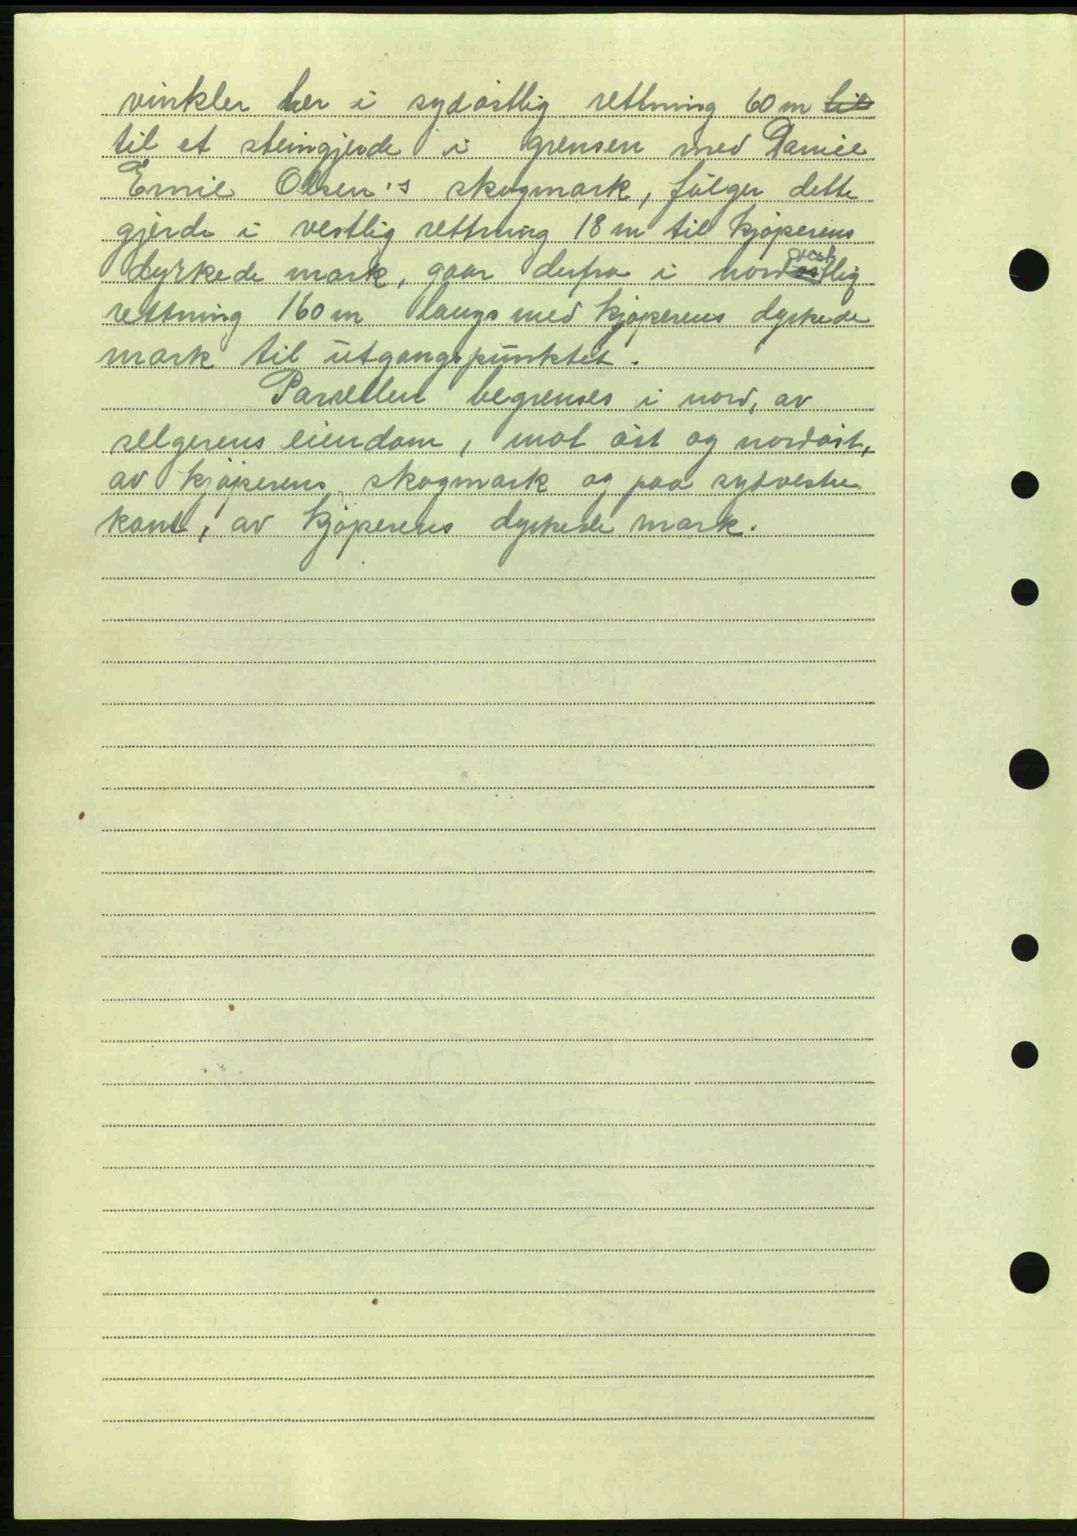 vinkler her i sydöstlig rettning 60 m til
til et steingjerde i grensen med Daniel
Emil Olsen's skogmark, fölger dette
gjerde i vestlig rettning 18 m til kjöperens
dyrkede mark, gaar derfra i nordvestlig
rettning 160 m langs med kjöperens dyrkede
mark til utgangspunktet.
Parsellen begrenses i nord, av
selgerens eiendom, mot öst og nordöst,
av kjöperens skogmark og paa sydvestre
kant, av kjöperens dyrkede mark.